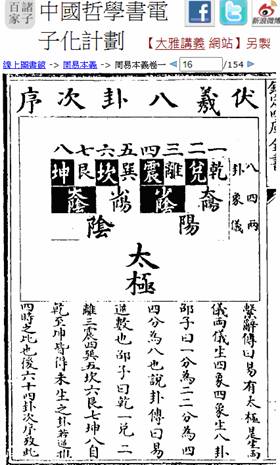 諸子百家
中國哲學書電
子化計劃
新浪微博
【大雅講義 網站】另製
線上圖書館 -> 周易本義 -> 周易本義卷一 16 /154
伏羲八卦次序
一二三四五六七八
八卦
四象
兩儀
乾兌離震巽坎艮坤
太陽 少陰 少陽 太陰
陽 陰
太極
繫辭傳曰易有太極是生兩
儀兩儀生四象四象生八卦
邵子曰一分為二二分為四
四分為八也說卦傳曰易
逆數也邵子曰乾一兌二
離三震四巽五坎六艮七坤八自
乾至坤皆得未生之卦若逆推
四時之比也後六十四卦次序放此